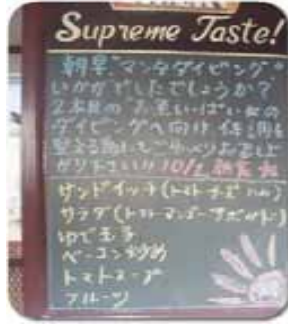 Supreme Taste!
朝早くマンタダイビング
いかがでしたでしょうか?
2本目の お魚いっぱいの
ダイビングへ向け 体調を
整える為にも ゆっくりお召し上
がり下さい!! 10/2
サンドイッチ(トマト チーズ ハム)
サラダ(トマト マンゴー アボカド)
ゆで玉子
ベーコン炒め
トマトスープ
フルーツ